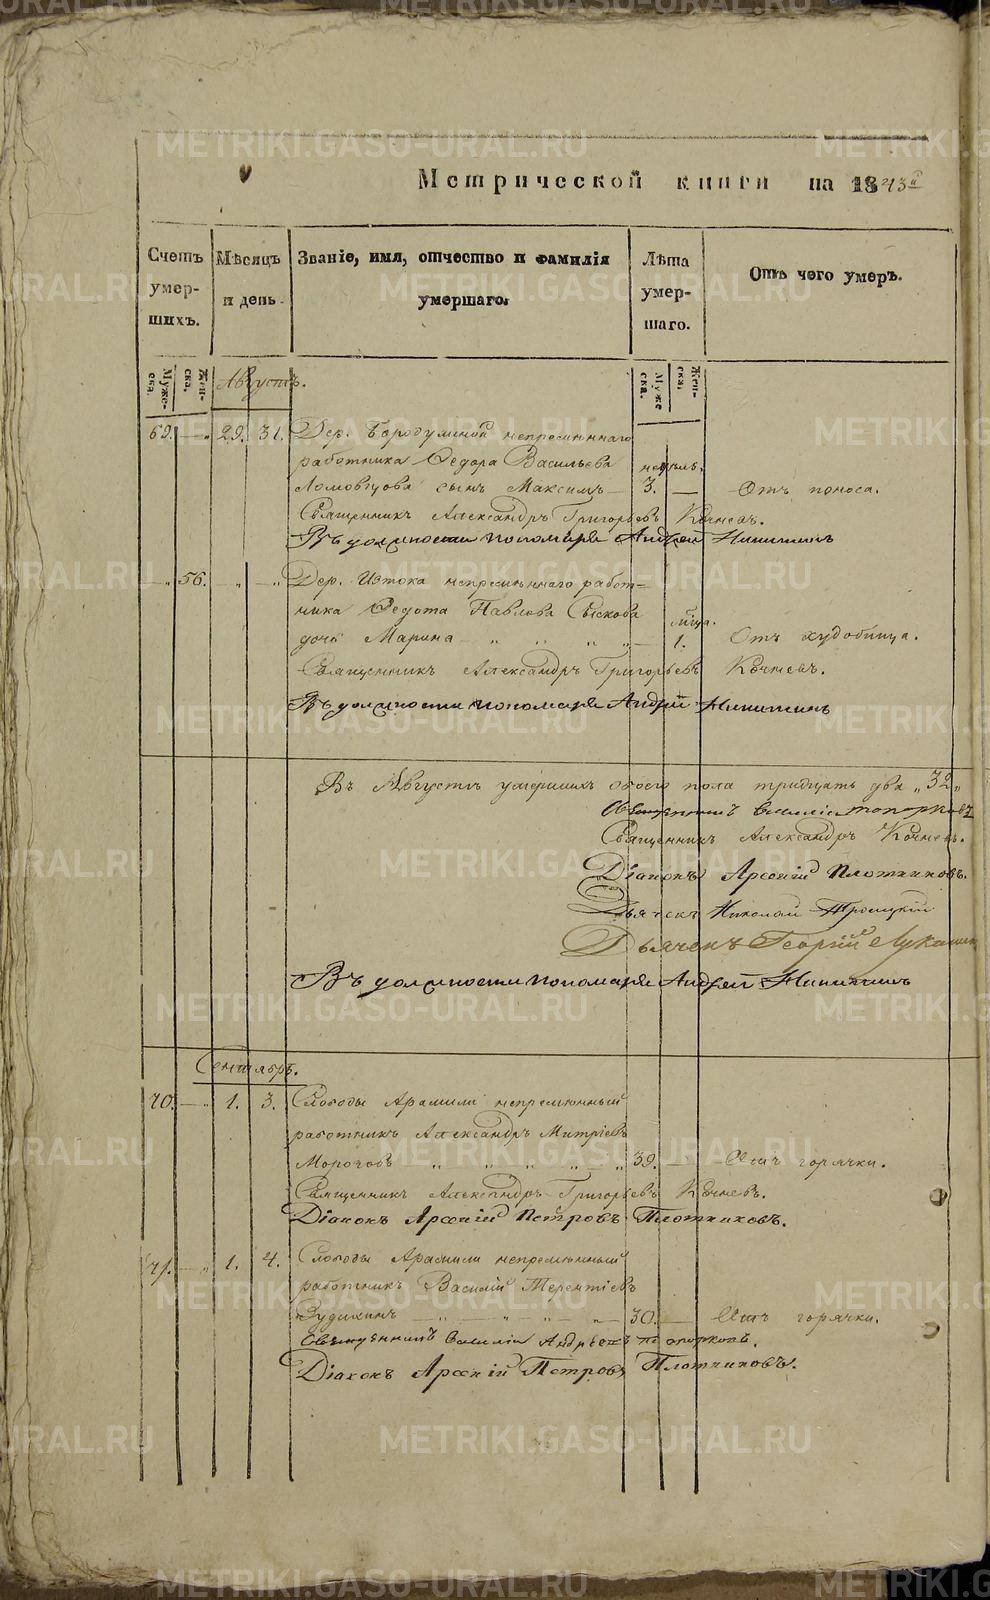 Метрической книги на 1843й
Счетъ умер-шихъ.
Мѣсяцъ и день.
Званіе, имя, отчество и фамилія умершаго.
Лѣта умер-шаго.
Отъ чего умеръ.
Муже-ска.
Жен-ска.
Августъ.
Муже ска.
Жен-ска.
69. — „ 29. 31. Дер. Бородулиной непремѣннаго
работника Федора Васильева недѣль.
Ломовцова сынъ Максимъ — 3. — Отъ поноса.
Священникъ Александръ Григорьевъ Кочневъ.
Въ должности пономаря Андрей Никитинъ
— „ 56. „ — „ Дер. Истока непремѣннаго работ=
ника Федота Павлова Сыскова мѣсяца.
дочь Марина — „ „ „ „ — 1. Отъ худобища.
Священникъ Александръ Григорьевъ Кочневъ.
Въ должности пономаря Андрей Никитинъ
Въ Августѣ умершихъ обоего пола тридцать два „32„
Священникъ Василій Топорковъ
Священникъ Александръ Кочневъ.
Діаконъ Арсеній Плотниковъ.
Дьячекъ Николай Троицкій
Дьячекъ Георгій Лукании
Въ должности пономаря Андрей Никитинъ
Сентябрь.
70. — „ 1. 3. Слободы Арамили непремѣнный
работникъ Александръ Митріевъ
Морочовъ — „ „ „ „ — „ 39. — Отъ горячки.
Священникъ Александръ Григорьевъ Кочневъ.
Діаконъ Арсеній Петровъ Плотниковъ.
71. — „ 1. 4. Слободы Арамили непремѣнный
работникъ Василій Терентіевъ
Зудихинъ — „ — „ — „ — „ — 30. — Отъ горячки.
Священникъ Василій Андреевъ Топорковъ.
Діаконъ Арсеній Петровъ Плотниковъ.
METRIKI.GASO-URAL.RU